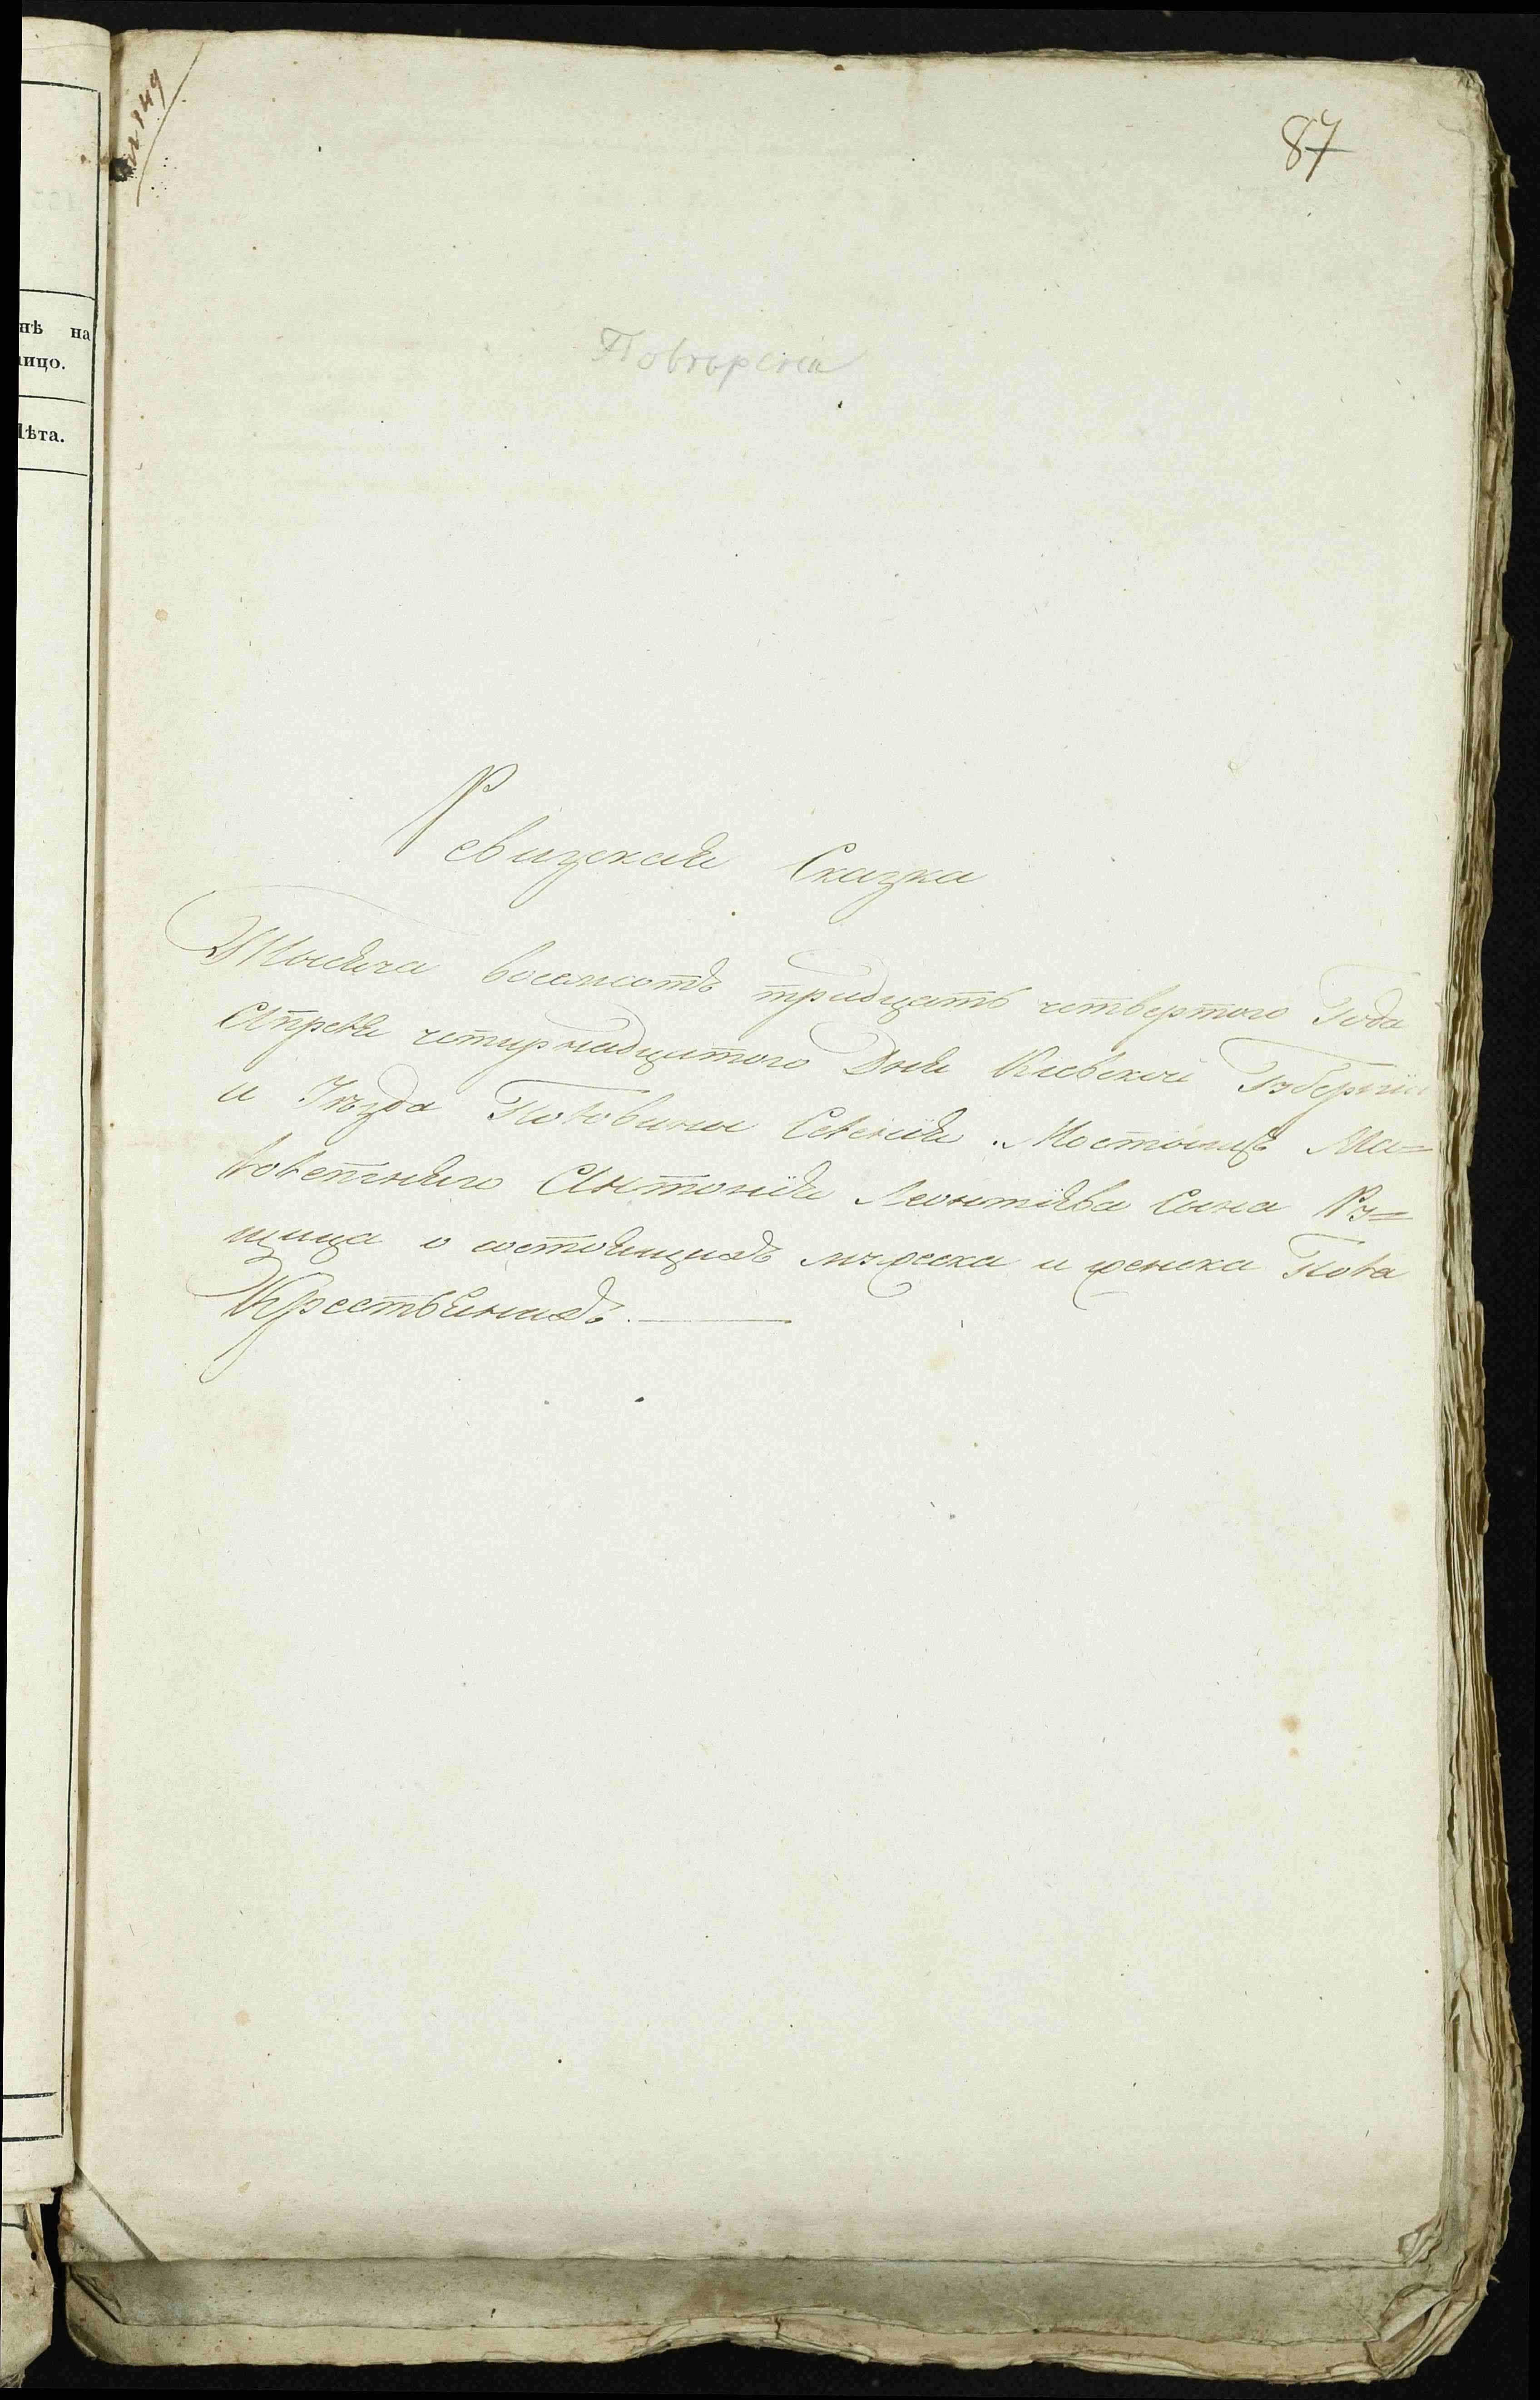 87
нѣ на
ицо.
Лѣта.
Повѣрена
Ревизская Сказка
Тысяча восемсотъ тридцать четвертого Года
Апреля четирнадцатого Дня Киевской Губернии
и Уезда Половины Селения Мостыщъ Ма=
лолетняго Антония Леонтиева Сына Ру=
щица о состоящихъ мужеска и женска Пола
Крестьянахъ.